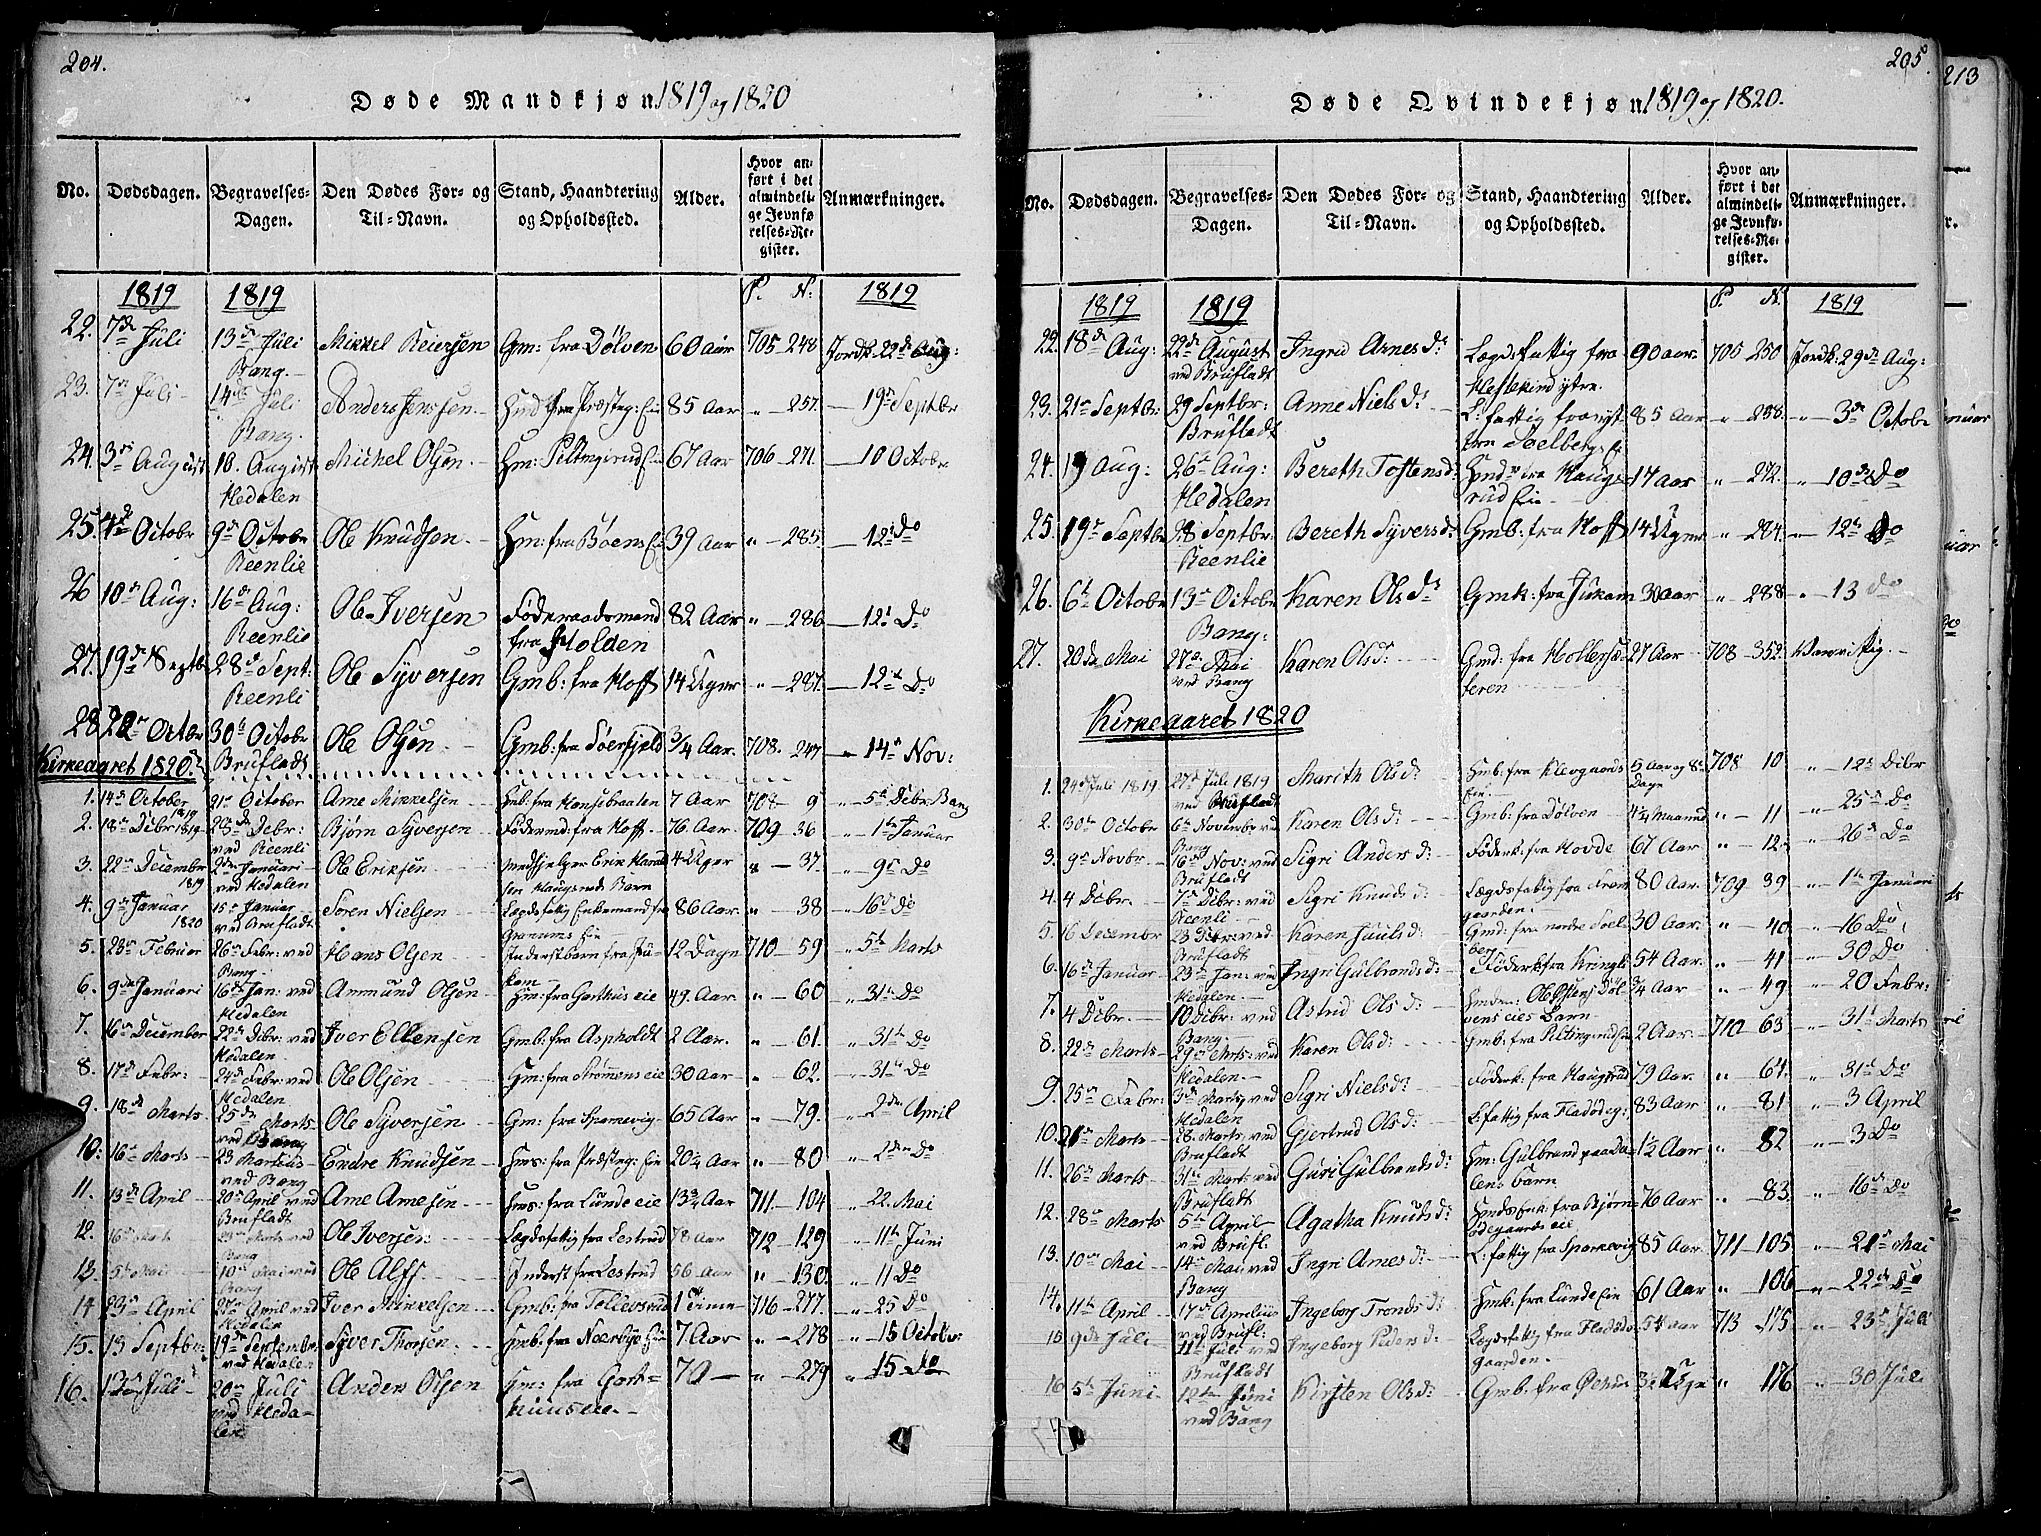 204.
Døde Mandkjøn 1819 og 1820
No. Dødsdagen. Begravelses-Dagen. Den Dødes For- og Til-Navn. Stand, Haandtering og Opholdssted. Alder. Hvor anført i det almindelige Jevnførelses-Register. Anmærkninger.
1819 1819 P. N: 1819
22. 7de Juli 13de Juli Bang. Mikkel Reiersen Gm: fra Dølven 60 aar 705 248 Jordk. 22de Aug:
23. 7de Juli 14de Juli Bang. Anders Jenssen 85 Aar " 257 19 Septbr
24. 3de August 10. August Hedalen Michel Olsen Hm: Piltingsrud Eie 67 Aar 706 271 10 Octobr
25. 4de Octobr 9de Octobr Reenlie Ole Knudsen Hm: fra Bøens Eie 39 Aar " 285 12 Do
26 10de Aug: 16de Aug: Reenlie Ole Iversen Föderaadsmand fra Holden 82 Aar " 286 12 Do
27. 19de Septbr 28de Sept: Reenli Ole Syversen Gmb: fra Hoff 14 Uger " 287 12te Do
28 22 Octbr 30te Octobr Brufladt Ole Olsen Gmb: fra Söerfjeld 3/4 Aar 708. 247 14de Nov:
Kirkeaaret 1820.
1. 14de October 21 October Arne Mikkelsen Hmb: fra Hansebraaten 7 Aar 708 9 " 5te Debr Bang
2. 18de Debr 1819 28de Debr: ved Reenli Bjørn Syversen Föderaad: fra Hoff 76 Aar. 709 36 " 1te Januar
3. 22de December 1819 2den Januari ved Hedalen Ole Eriksen Medhjelper Erik Haralsen Haugsruds Barn 4 Uger " 37. " 9de Do
4. 9de Januar 1820 15de Januar ved Brufladt Søren Nielsen Lægdsfattig Enkemand fra Granums Eie 86 Aar. " 38 " 16de Do
5. 23de Februar 26de Febr: ved Bang Hans Olsen Inderstbarn fra Jukam 12 Dage 710 59 " 5te Marts
6. 9de Januari 16de Jan: ved Hedalen Ammund Olsen Hm: fra Garthus eie 49. Aar " 60 " 31te Do
7. 16de December 22de Debr: ved Hedalen Iver Ellensen Gmb: fra Aspholdt 2 Aar. " 61. " 31te Do
8. 17de Febr: 24de Febr: ved Hedalen Ole Olsen Hm: fra Strømmens eie 30 Aar " 62. " 31te Do
9. 18de Marts 25de Marts ved Bang Ole Syversen Gm: fra Sparrevig 65 Aar " 79. " 2den April
10. 16de Marts 23 Martius ved Bang Endre Knudsen Hms: fra Præsteg: Eie 20 1/4 Aar " 80 " 2den Do
11. 13de April 20de April ved Brufladt Arne Arnesen Hms: fra Lunde eie 13 3/4 Aar 711 104 " 22. Mai
12. 16de Marts 23de Marts ved Bang Ole Iversen Lægdsfattig fra Lestrud 78 Aar 712 129 " 11te Juni
13. 5te Mai 10de Mai ved Bang Ole Alfs. Inderst fra Lestrud 56 Aar " 130. " 11 Do
14 23de April 27de April ved Hedalen Iver Mikkelsen Gmb: fra Tollevsrud 1 Time 716 277. " 25 Do
15. 13 Septbr: 19de September ved Hedalen Syver Thorsen Hmb. fra Nærbye Eie 7 Aar " 278 " 15 Octobr:
16. 13de Juli 20de Juli ved Hedalen Anders Olsen Hm: fra Garthuus eie. 70 " 279 " 15 Do
205.
Døde Qvindekjøn 1819 og 1820.
No. Dødsdagen. Begravelses-Dagen. Den Dødes For- og Til-Navn. Stand, Haandtering og Opholdssted. Alder. Hvor anført i det almindelige Jevnførelses-Register. Anmærkninger.
1819 1819 P N. 1819
22. 18de Aug: 22de August ved Brufladt Ingrid Arnesd: Lægdsfattig fra Hestekind ytre. 90 aar. 705 250 Jordk: 29de Aug:
23. 21de Septbr: 29 Septbr: Brufladt Anne Nielsd: 85 Aar " 258. " 3de Octobr
24. 19 Aug: 26de Aug: Hedalen Bereth Tostensd: Hmd: fra Haugsrud Eie 17 Aar " 272. " 10de Do
25. 19de Septbr 28 Septbr: Reenlie Bereth Syversd: Gmb: fra Hoff 14 Uger " 284. " 12te Do
26. 6te Octobr 13de Octobr Bang: Karen Olsd: Gmk: fra Jukam 30 Aar " 288 " 13 Do
27. 20de Mai 27de Mai ved Bang Karen Olsd: Gmd: fra 27 Aar 708 352 Vanvittig.
Kirkeaaret 1820
1. 24de Juli 1819 27de Juli 1819 ved Brufladt Marith Olsd: Hmb: fra Klevgaards Eie. 5 Aar og 8 Dage 708 10 " 12te Debr
2. 30te Octobr 6te November ved Bang Karen Olsd: Gmb: fra Dølven 4 1/4 Maaned " 11 " 25de Do
3. 9de Novbr. 16de Nov: ved Brufladt Sigri Andersd: Föderk: fra Hovde 67 Aar " 12. " 26de Do
4. 4 Debr. 7de Debr: ved Reenli Sigri Knudsd: 80 Aar. 709 39 " 1te Januari
5. 16 Decembr 23 Debr: ved Brufladt Karen Juulsd: Gmd: fra nordre Soelberg 30 Aar. " 40 " 16 Do
6. 16de Januar 23de Jan: ved Hedalen Ingri Gulbrandsd: Föderk: fra Kringli 54 Aar. " 41 " 30 Do
7. 4 Debr. 10 Debr: ved Bang Astrid Olsd: 3/4 Aar " 49 " 20 Febr:
8. 22de Marts 29de Marts: ved Hedalen Karen Olsd: Gmb: fra Piltingsrud 2 Aar. 710 63 " 31te Marts
9. 25de Febr: 3de Marts ved Hedalen Sigri Nielsd: Föderk: fra Haugsrud 79 Aar. " 64. " 31te Do
10. 21de Marts 28. Marts ved Brufladt Gjertrud Olsd: L: fattig fra Fladøeg: 83 Aar " 81 " 3 April
11. 26de Marts 31te Marts ved Brufladt Guri Gulbrandsd: Hm: Gulbrand paa Dalens barn 1 1/2 Aar " 82 " 3 Do
12. 28de Marts 5te April ved Brufl: Agatha Knudsd: 76 Aar " 83. " 16de Do
13. 10de Mai 14de Mai ved Bang Ingri Arnesd: L: fattig fra Sparrevig 85 Aar 711 105. " 21de Mai
14. 11te April 17de Aprilius ved Brufl: Ingeborg Trondsd: Hmk: fra Lunde Eie 61 Aar " 106 " 22de Do
15 9de Juli 11te Juli ved Brufladt Ingeborg Pedersd: Lægdsfattig fra Fladøegaarden 54 aar 713 175 " 23de Juli
16 5te Juni 12te Juni ved Bang Kirsten Olsd: Gmb. fra 3 1/2 Uge " 176 " 30 Juli
213